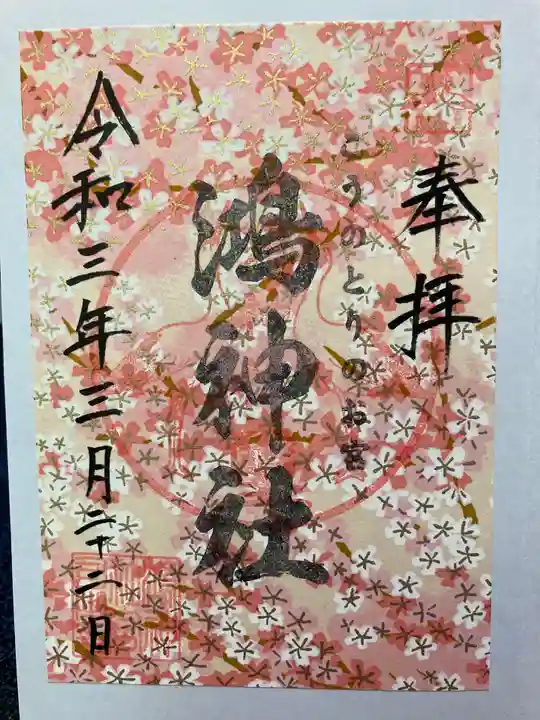 奉拝
こうのとりのお宮
鴻神社
令和三年三月二十二日